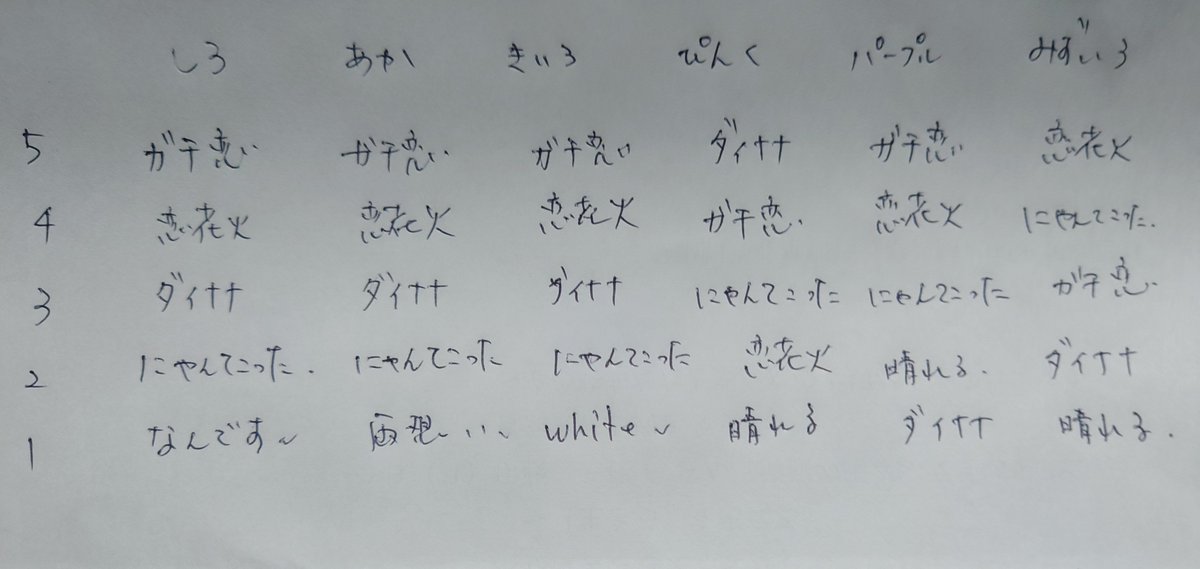 しろ あか きいろ ぴんく パープル みずいろ
5 ガチ恋い ガチ恋い ガチ恋い ダイナナ ガチ恋い 恋花火
4 恋花火 恋花火 恋花火 ガチ恋い 恋花火 にゃんてこった.
3 ダイナナ ダイナナ ダイナナ にゃんてこった にゃんてこった ガチ恋い
2 にゃんてこった. にゃんてこった にゃんてこった 恋花火 晴れる. ダイナナ
1 なんです〜 white〜 晴れる ダイナナ 晴れる.